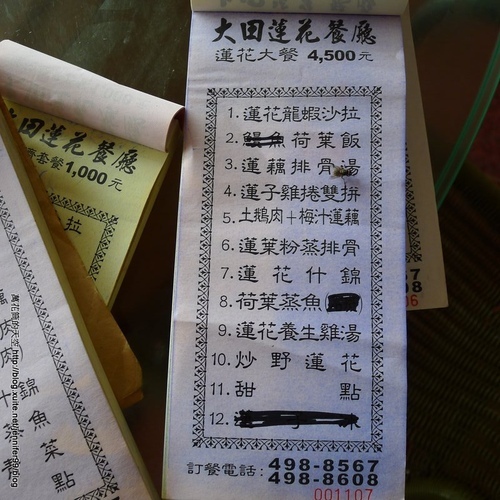 大田蓮花餐廳
蓮花大餐 4,500元
1. 蓮花龍蝦沙拉
2. 魚荷葉飯
3. 蓮藕排骨湯
4. 蓮子雞捲雙拼
5. 土鵝肉+梅汁蓮藕
6. 蓮葉粉蒸排骨
7. 蓮花什錦
8. 荷葉蒸魚
9. 蓮花養生雞湯
10. 炒野蓮花
11. 甜點
12.
訂餐電話: 498-8567
498-8608
001107
大田蓮花餐廳
套餐1,000元
拉
錦
魚
菜
點